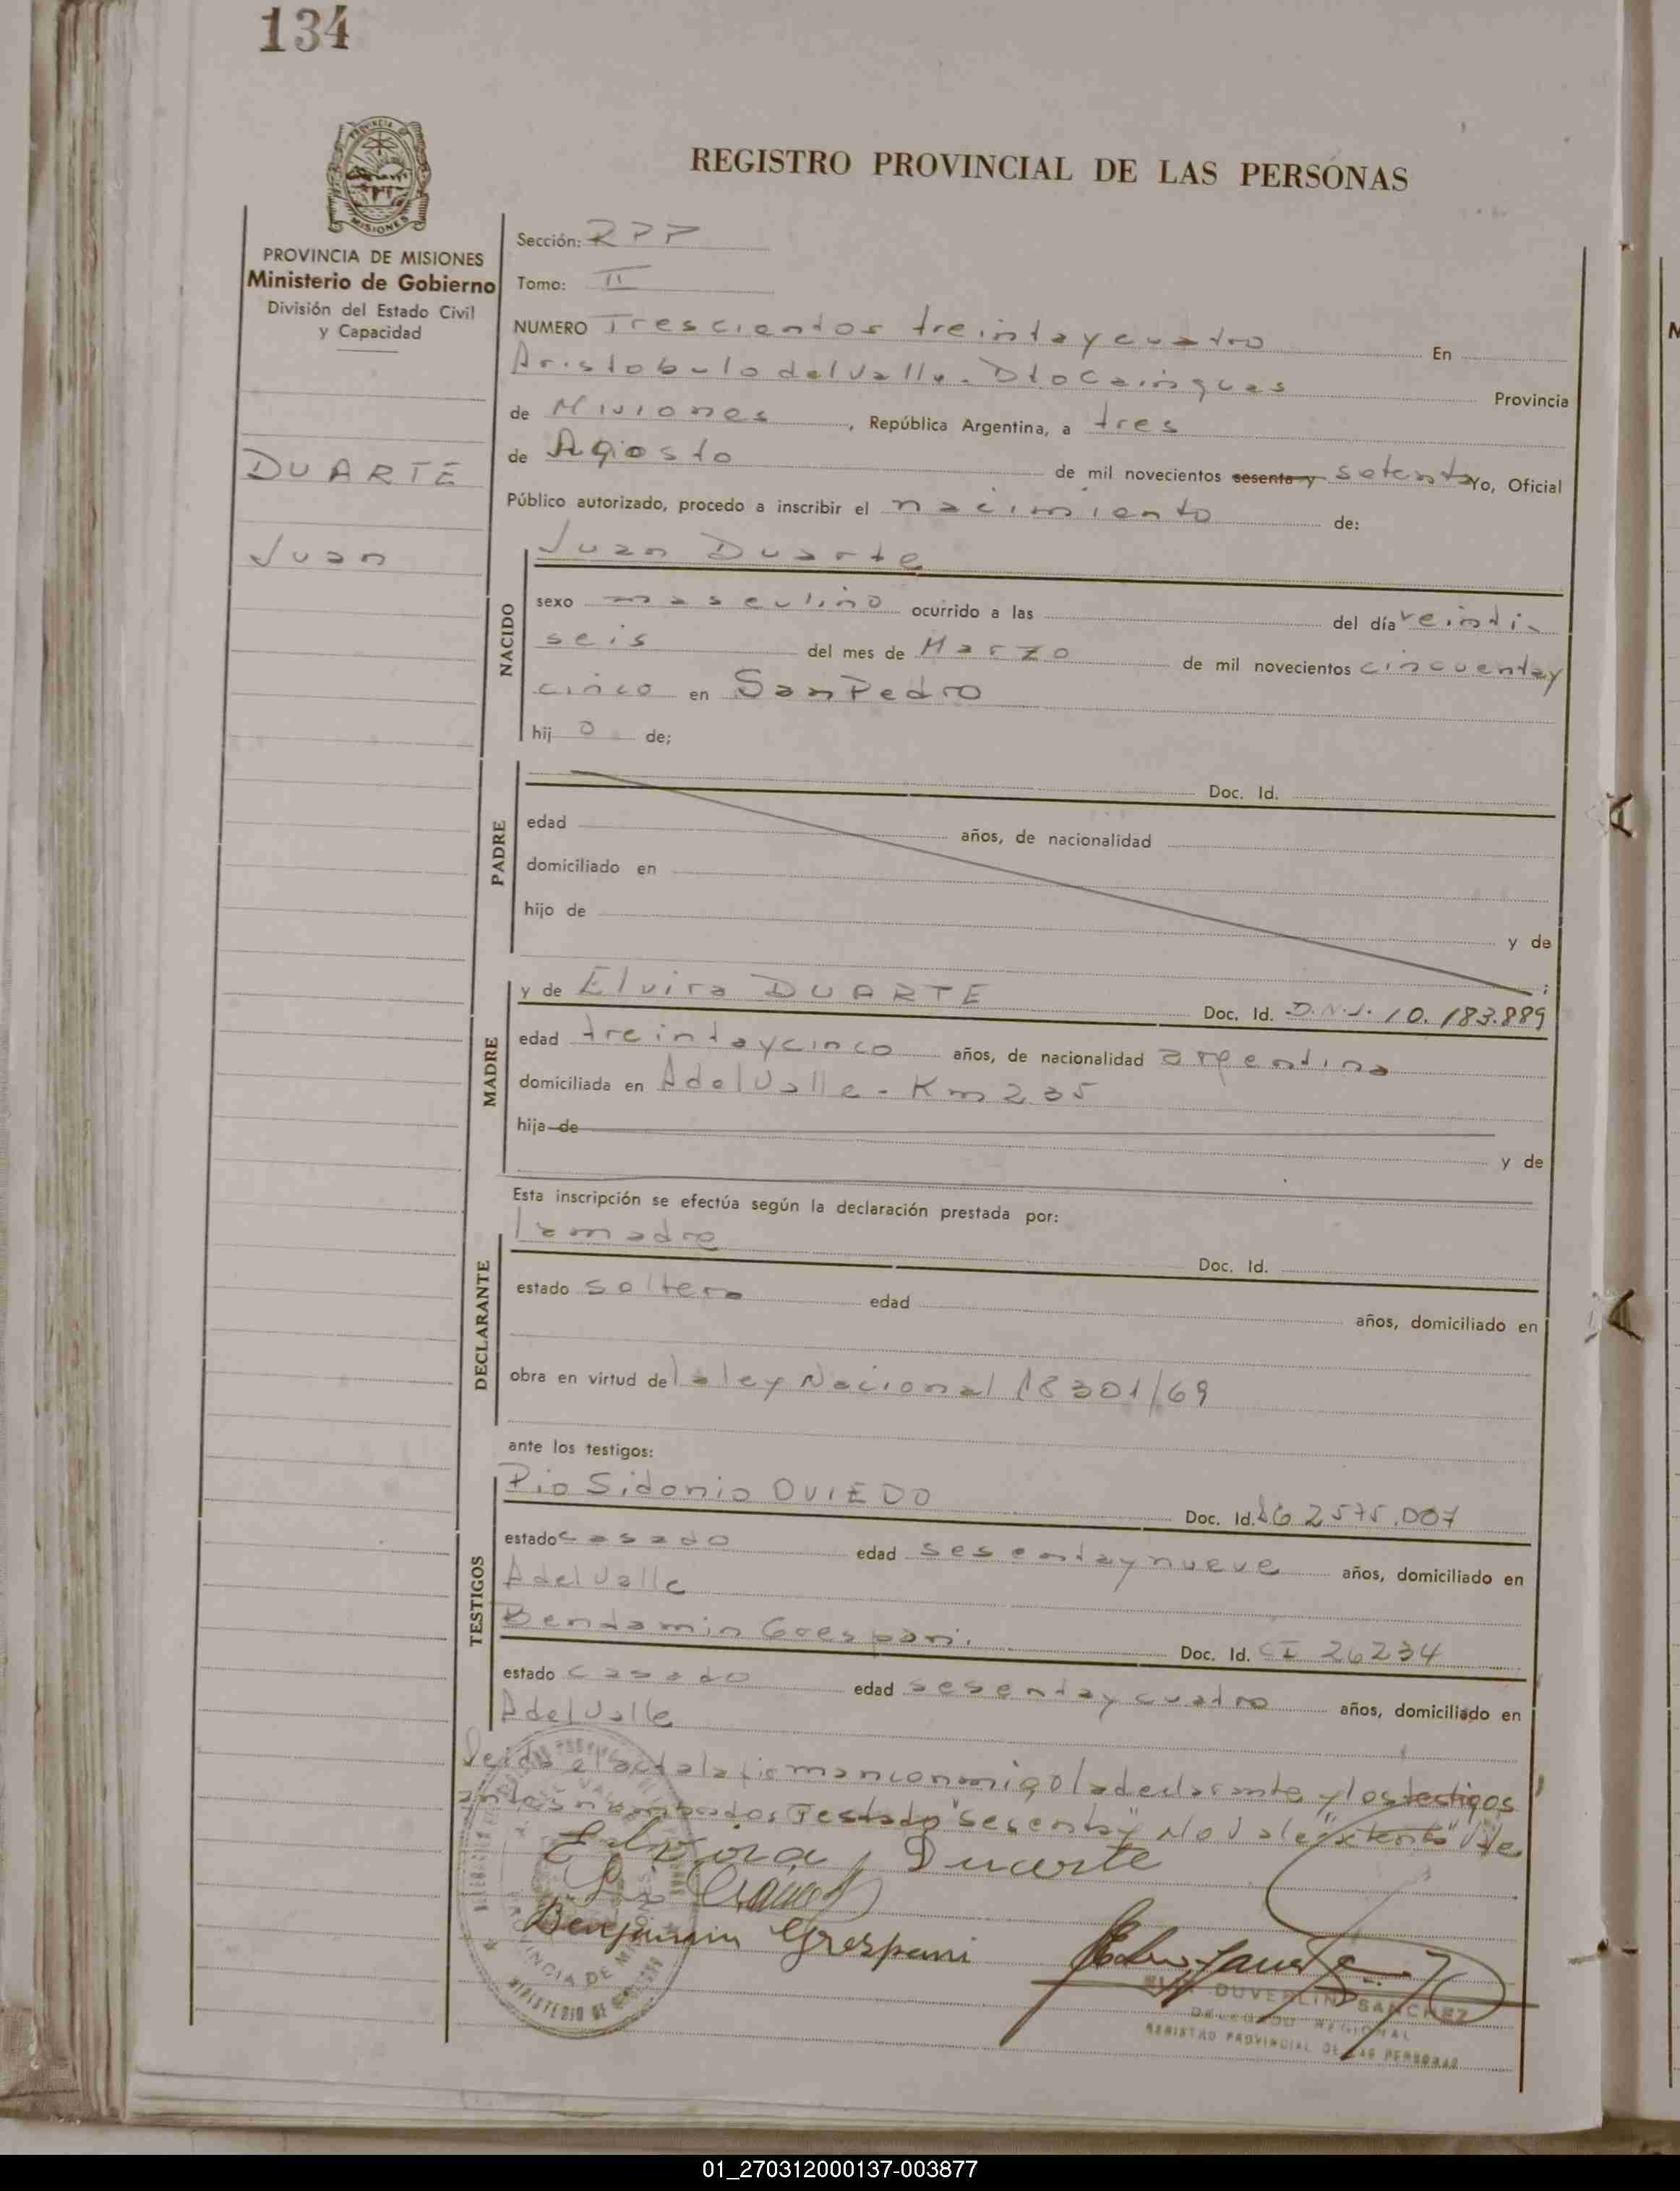 134
PROVINCIA DE MISIONES
PROVINCIA DE MISIONES
Ministerio de Gobierno
División del Estado Civil
y Capacidad
DUARTE
Juan
REGISTRO PROVINCIAL DE LAS PERSONAS
Sección: RPP
Tomo: II
NUMERO Trescientos treinta y cuatro En
Aristobulo del Valle. Dto Cainguas Provincia
de Misiones, República Argentina, a tres
de Agosto de mil novecientos sesenta y setenta Yo, Oficial
Público autorizado, procedo a inscribir el nacimiento de:
NACIDO
Juan Duarte
sexo masculino ocurrido a las del día veinti-
seis del mes de Marzo de mil novecientos cincuenta y
cinco en San Pedro
hij o de;
PADRE
Doc. Id.
edad años, de nacionalidad
domiciliado en
hijo de
y de
MADRE
y de Elvira DUARTE Doc. Id. D.N.I. 10.183.889
edad treinta y cinco años, de nacionalidad argentina
domiciliada en A del Valle - Km 235
hija de
y de
Esta inscripción se efectúa según la declaración prestada por:
DECLARANTE
la madre
Doc. Id.
estado soltera edad años, domiciliado en
obra en virtud de la ley Nacional 18301/69
ante los testigos:
TESTIGOS
Pio Sidonio OVIEDO Doc. Id. 2575.007
estado casado edad sesenta y nueve años, domiciliado en
A del Valle
Bendamin Grespani. Doc. Id. CI 26234
estado casado edad sesenta y cuatro años, domiciliado en
A del Valle
Leida el acta la firman conmigo la declarante y los testigos
antes nombrados Testado "sesenta y" No Vale "setenta" Vale
Elvira Duarte
Benjamin Grespani
DUVERLIN SANCHEZ
DELEGADO REGIONAL
REGISTRO PROVINCIAL DE LAS PERSONAS
01_270312000137-003877